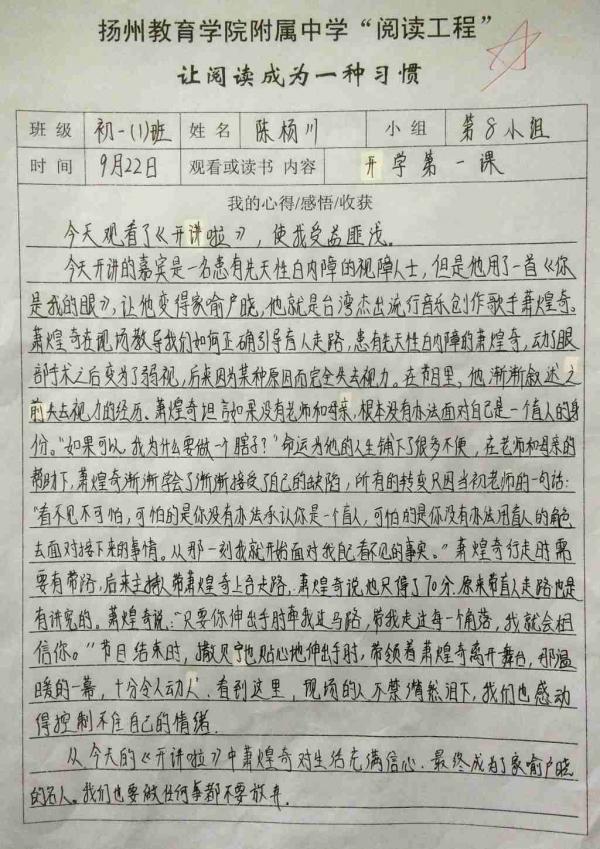 扬州教育学院附属中学“阅读工程”
让阅读成为一种习惯
班 级 初一(1)班 姓 名 陈杨川 小 组 第8小组
时 间 9月22日 观看或读书 内容 开学第一课
我的心得/感悟/收获
今天观看了《开讲啦》，使我受益匪浅。
今天开讲的嘉宾是一名患有先天性白内障的视障人士，但是他用了一首《你
是我的眼》，让他变得家喻户晓，他就是台湾杰出流行音乐创作歌手萧煌奇。
萧煌奇在现场教导我们如何正确引导盲人走路，患有先天性白内障的萧煌奇，动了眼
部手术之后变为了弱视，后来因为某种原因而完全失去视力。在节目里，他渐渐叙述之
前失去视力的经历、萧煌奇坦言如果没有老师和母亲，根本没有办法面对自己是一个盲人的身
份。“如果可以，我为什么要做一个瞎子？”命运为他的人生铺下了很多不便，在老师和母亲的
帮助下，萧煌奇渐渐学会了渐渐接受了自己的缺陷，所有的转变只因当初老师的一句话：
“看不见不可怕，可怕的是你没有办法承认你是一个盲人，可怕的是你没有办法用盲人的角色
去面对接下来的事情。从那一刻我就开始面对我自己看不见的事实。”萧煌奇行走时需
要有带路，后来主持人带萧煌奇上台走路，萧煌奇说他只得了70分，原来带盲人走路也是
有讲究的。萧煌奇说：“只要你伸出手肘牵我过马路，带我走过每一个角落，我就会相
信你。”节目结束时，撒贝宁也贴心地伸出手肘，带领着萧煌奇离开舞台，那温
暖的一幕，十分令人动人。看到这里，现场的人不禁潸然泪下，我们也感动
得控制不住自己的情绪.
从今天的《开讲啦》中萧煌奇对生活充满信心.最终成为了家喻户晓
的名人。我们也要做任何事都不要放弃.